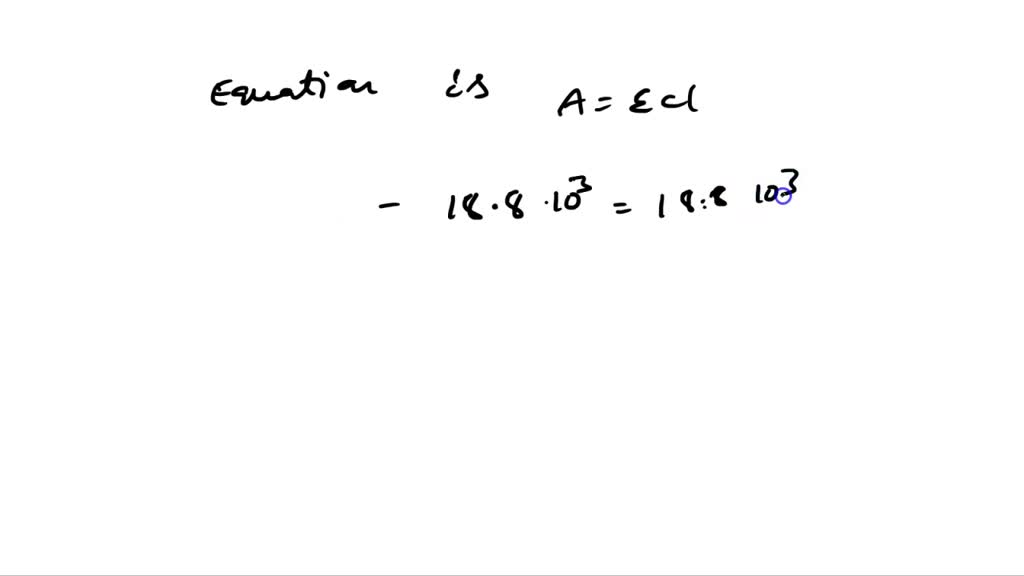 Equation is A = εcl
- 18.8 · 10³ = 18.8 10³